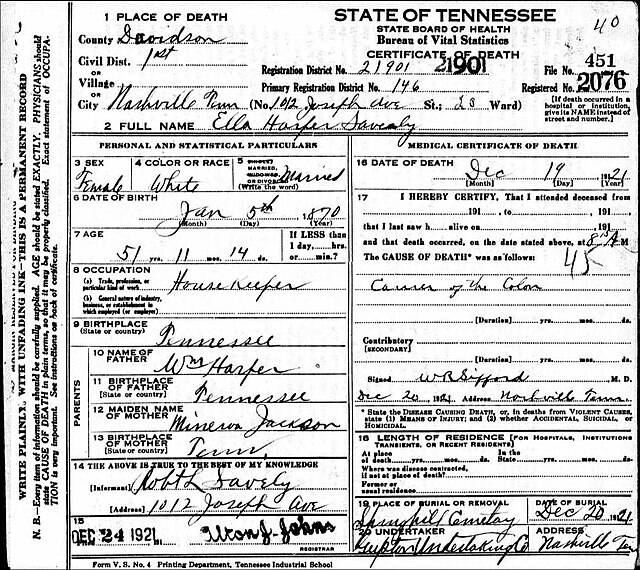 STATE OF TENNESSEE
STATE BOARD OF HEALTH
Bureau of Vital Statistics
CERTIFICATE OF DEATH
40
1 PLACE OF DEATH
County Davidson
Civil Dist. 1st
OR
Village
OR
City Nashville Tenn (No. 1012 Joseph Ave St.; 20 Ward)
Registration District No. 21901 21901
Primary Registration District No. 146
File No. 451
Registered No. 2076
[If death occurred in a hospital or institution, give its NAME instead of street and number.]
2 FULL NAME Ella Harper Savely
PERSONAL AND STATISTICAL PARTICULARS
3 SEX Female
4 COLOR OR RACE White
5 SINGLE, MARRIED, WIDOWED, OR DIVORCED (Write the word) Married
6 DATE OF BIRTH
Jan 5th 1870
(Month) (Day) (Year)
7 AGE
51 yrs. 11 mos. 14 ds.
If LESS than 1 day,......hrs. or......min.?
8 OCCUPATION
(a) Trade, profession, or particular kind of work House Keeper
(b) General nature of industry, business, or establishment in which employed (or employer)
9 BIRTHPLACE
(State or country) Tennessee
PARENTS
10 NAME OF FATHER Wm Harper
11 BIRTHPLACE OF FATHER
(State or country) Tennessee
12 MAIDEN NAME OF MOTHER Minerva Jackson
13 BIRTHPLACE OF MOTHER
(State or country) Tenn.
14 THE ABOVE IS TRUE TO THE BEST OF MY KNOWLEDGE
(Informant) Robt L Savely
(Address) 1012 Joseph Ave
15
DEC 24 1921
REGISTRAR
MEDICAL CERTIFICATE OF DEATH
16 DATE OF DEATH
Dec 19 1921
(Month) (Day) (Year)
17 I HEREBY CERTIFY, That I attended deceased from
191 , to 191 ,
that I last saw h alive on 191 ,
and that death occurred, on the date stated above, at M
The CAUSE OF DEATH* was as follows:
45
Cancer of the Colon
(Duration) yrs. mos. ds.
Contributory
(SECONDARY)
(Duration) yrs. mos. ds.
Signed W R Sifford M. D.
Dec 20, 1921 (Address) Nashville Tenn.
* State the DISEASE CAUSING DEATH, or, in deaths from VIOLENT CAUSES, state (1) MEANS OF INJURY; and (2) whether ACCIDENTAL, SUICIDAL, or HOMICIDAL.
18 LENGTH OF RESIDENCE (FOR HOSPITALS, INSTITUTIONS TRANSIENTS, OR RECENT RESIDENTS)
At place of death yrs. mos. ds. In the State yrs. mos. ds.
Where was disease contracted, if not at place of death?
Former or usual residence
19 PLACE OF BURIAL OR REMOVAL
Springhill Cemetery
DATE OF BURIAL
Dec 20 1921
20 UNDERTAKER
Undertaking Co
ADDRESS
Nashville Ten
Form V. S. No. 4 Printing Department, Tennessee Industrial School
WRITE PLAINLY, WITH UNFADING INK—THIS IS A PERMANENT RECORD
N. B.—Every item of information should be carefully supplied. AGE should be stated EXACTLY. PHYSICIANS should
state CAUSE OF DEATH in plain terms, so that it may be properly classified. Exact statement of OCCUPA-
TION is very important. See instructions on back of certificate.